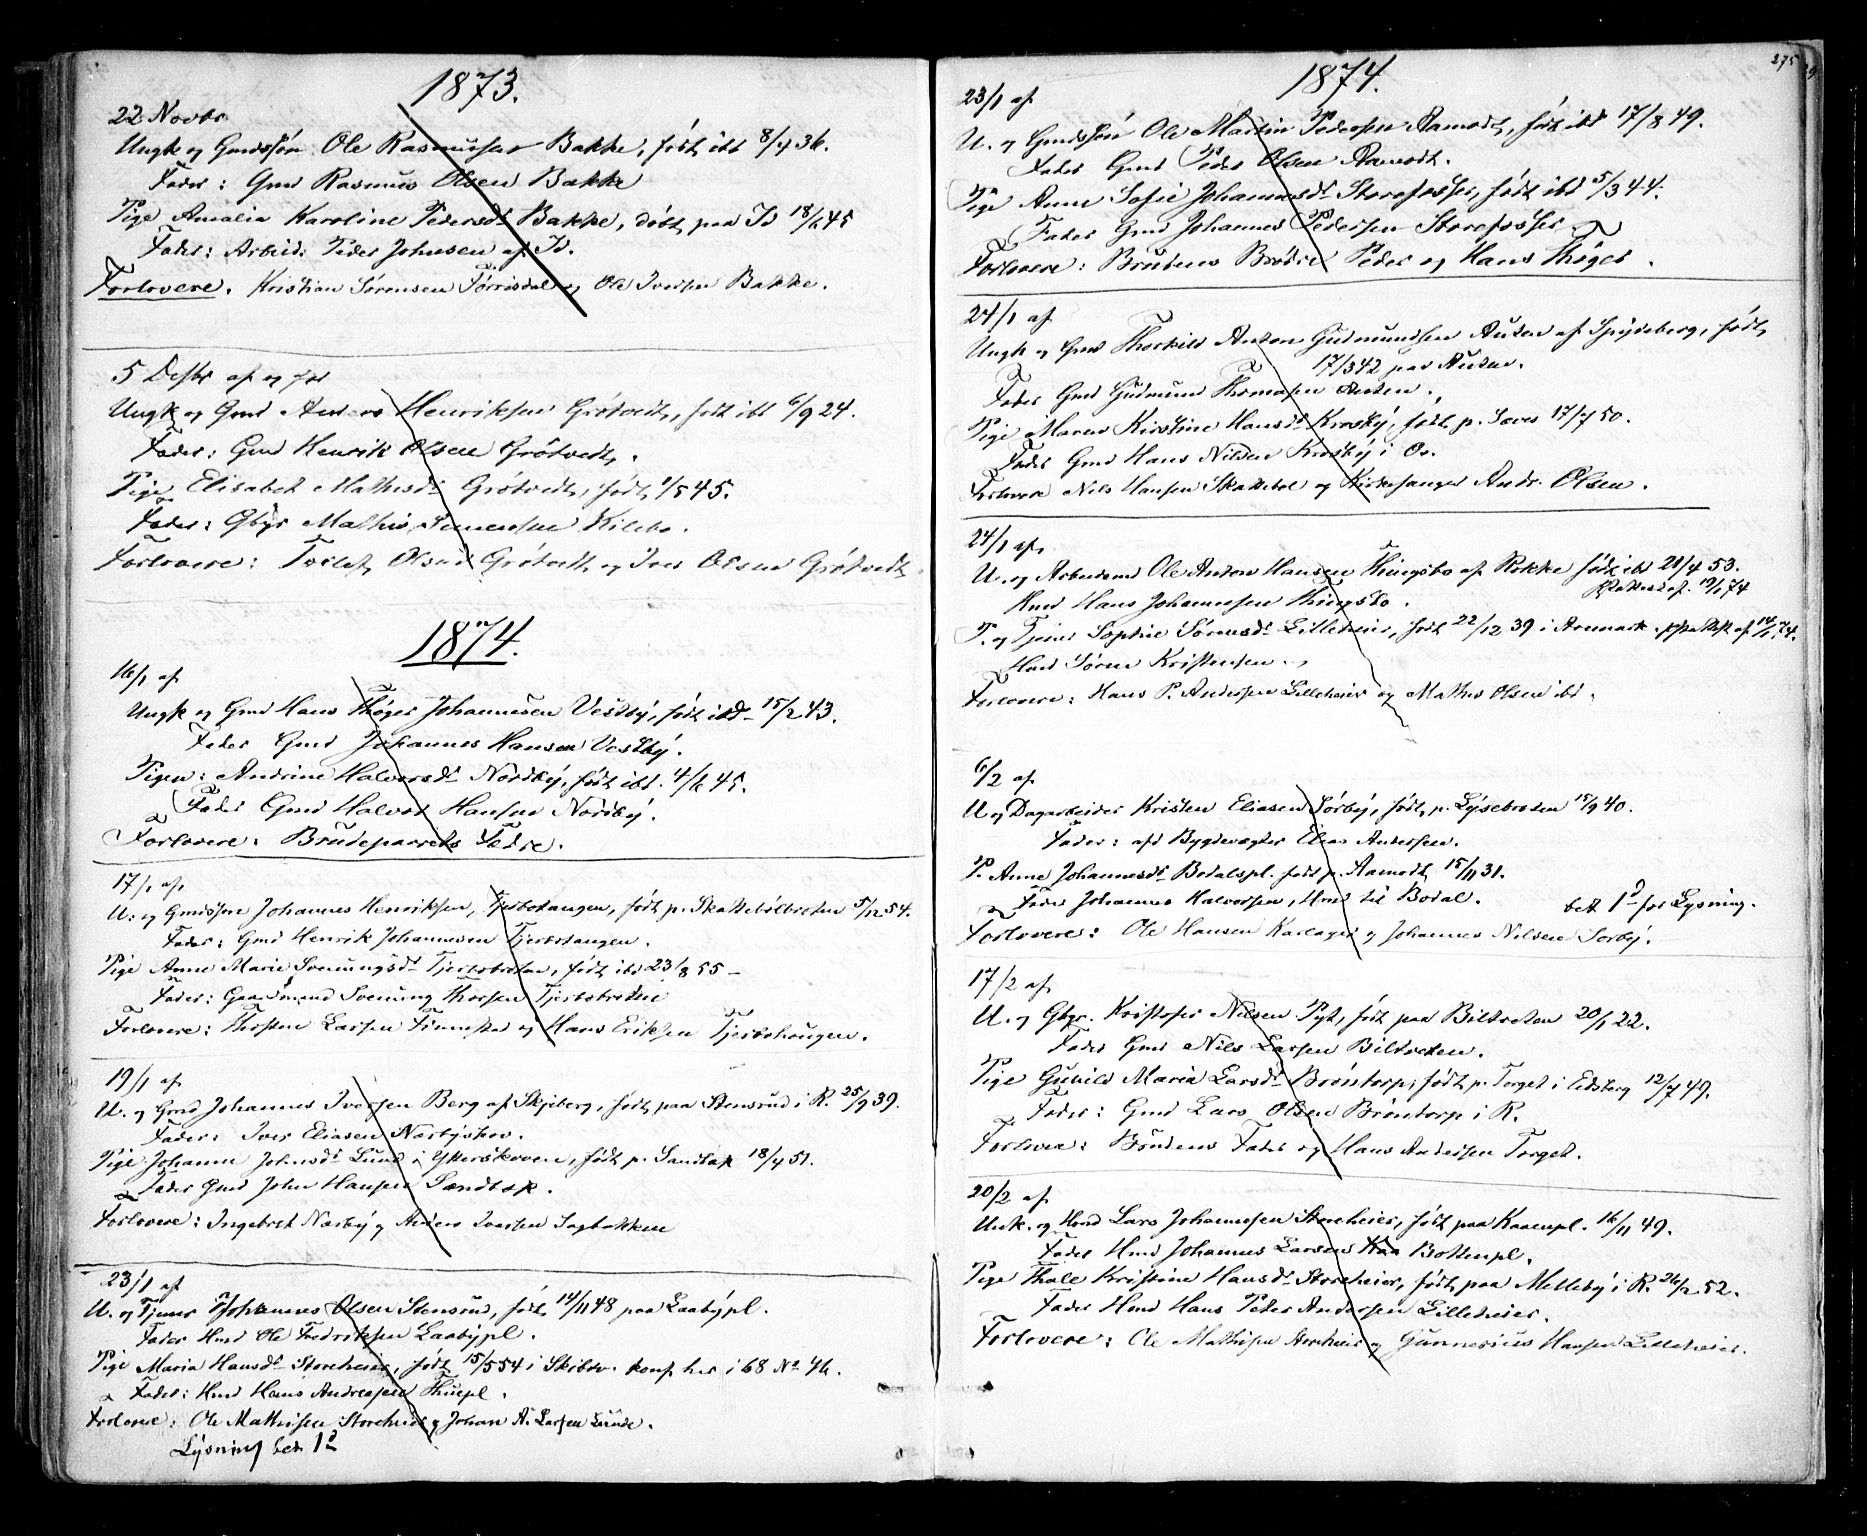 1873.
22 Novbr
Ungk og Gmdssøn Ole Rasmussen Bakke, født ibd 8/4 36.
Fader: Gmd Rasmus Olsen Bakke
Pige Amalia Karoline Pedersdt Bakke, døbt paa Id 18/6 45
Fader: Arbeid: Peder Johnsen af Id.
Forlovere. Kristian Sørensen Torrisdal og Ole Iversen Bakke.
5 Desbr af og for
Ungk og Gmd Anders Henriksen Grötvedt, født ibd 6/9 24.
Fader: Gmd Henrik Olsen Grötvedt.
Pige Elisabet Mathisdt Grötvedt, født 1/5 45.
Fader: Gbgr Mathis Simensen Kilebo.
Forlovere: Torlef Olsen Grötvedt og Iver Olsen Grötvedt
1874.
16/1 af
Ungk og Gmd Hans Thöger Johannesen Vestby, født ibd 15/2 43.
Fader Gmd Johannes Hansen Vestby.
Pigen: Andrine Halvorsdt Nordby, født ibd. 4/6 45.
Fader Gmd Halvor Hansen Nordby.
Forlovere: Brudeparrets Fædre.
17/1 af
U. og Gmdssøn Johannes Henriksen, Tjerbotangen, født p. Skattebölbraten 5/12 54.
Fader: Gmd Henrik Johannesen Tjerbotangen.
Pige Anne Marie Svenungsdt Tjerbobraten, født ibd 23/8 55
Fader: Gaardmand Svenung Thorsen Tjerbobraten
Forlovere: Thosten Larsen og Hans Eriksen Tjerbohaugen.
19/1 af
U. og Gmd Johannes Iversen Berg af Skjeberg, født paa Stensrud i R. 25/9 39.
Fader: Iver Eliasen Næsbyskov.
Pige Johanne Johnsdt Lund i Ytterskoven, født p. Sandbæk 18/4 51.
Fader Gmd John Hansen Sandbæk.
Forlovere: Ingebret Næsby og Anders Iversen Sagbakken
23/1 af
U. og Tjener Johannes Olsen Stensrud, født 14/11 48 paa Laabypl.
Fader Hmd Ole Fredriksen Laabypl.
Pige Maria Hansdt Storeheier, født 15/5 54 i Skibtv. konf her i 68 No 46.
Fader: Hmd Hans Andreasen Thuepl.
Forlovere: Ole Mathisen Storeheier og Johan A. Larsen Lunde.
Lysning bet. 1d
275
1874.
23/1 af
U. og Gmdssøn Ole Martin Pedersen Aamodt, født ibd 17/8 49.
Fader Gmd Peder Olsen Aamodt.
Pige Anne Sofie Johannesdt Storefosser, født ibd 5/3 44.
Fader Gmd Johannes Pedersen Storefosser.
Forlovere: Brudens Brödre Peder og Hans Thöger.
24/1 af
Ungk og Gmd Thorkild Anton Gudmundsen Auten af Spydeberg, født
17/3 42 paa Auten.
Fader Gmd Gudmund Thomasen Auten.
Pige Maren Kirstine Hansdt Krosby, født p. Sæves 17/7 50.
Fader Gmd Hans Nilsen Krosby i Os.
Forlovere Nils Hansen Skattebøl og Kirkesanger Andr. Olsen.
24/1 af
U. og Arbeidsmd Ole Anton Hansen Thingsbo af Rokke født ibd 28/4 53.
Pasattest af. 19/1 74
Hmd Hans Johannesen Thingsbo.
P. og Tjener Sophie Sörensdt Lilleheier, født 22/12 39 i Aremark. Attest af 14/1 74.
Hmd Sören Kristensen.
Forlovere: Hans P. Andersen Lilleheier og Mathis Olsen ibd.
6/2 af
U. og Dagarbeider Kristen Eliasen Sörby, født p. Lysebraten 15/9 40.
Fader: afd Bygdevægter Elias Andersen.
P. Anne Johannesdt Bodalspl. født p. Aamodt 15/11 31.
Fader Johannes Halvorsen, Hmd til Bodal.
bet 1d for Lysning.
Forlovere: Ole Hansen Karlager og Johannes Nilsen Sörby.
17/2 af
U. og Gbgr. Kristofer Nilsen Pyt, født paa Biltreten 20/1 22.
Fader Gmd Nils Larsen Biltveten.
Pige Gunild Maria Larsdt Bröntorp, født p. Torget i Eidsberg 12/7 49.
Fader: Gmd Lars Olsen Bröntorp i R.
Forlovere: Brudens Fader og Hans Andersen Torget.
20/2 af
Unk. og Hmd Lars Johannesen Storeheier, født paa Kaaenpl. 16/11 49.
Fader Hmd Johannes Larsen Bottenpl.
Pige Thale Kristine Hansdt Storeheier, født paa Melleby i R. 26/2 52.
Fader Hmd Hans Peter Andersen Lilleheier.
Forlovere: Ole Mathisen Storeheier og Gunnerius Hansen Lilleheier.